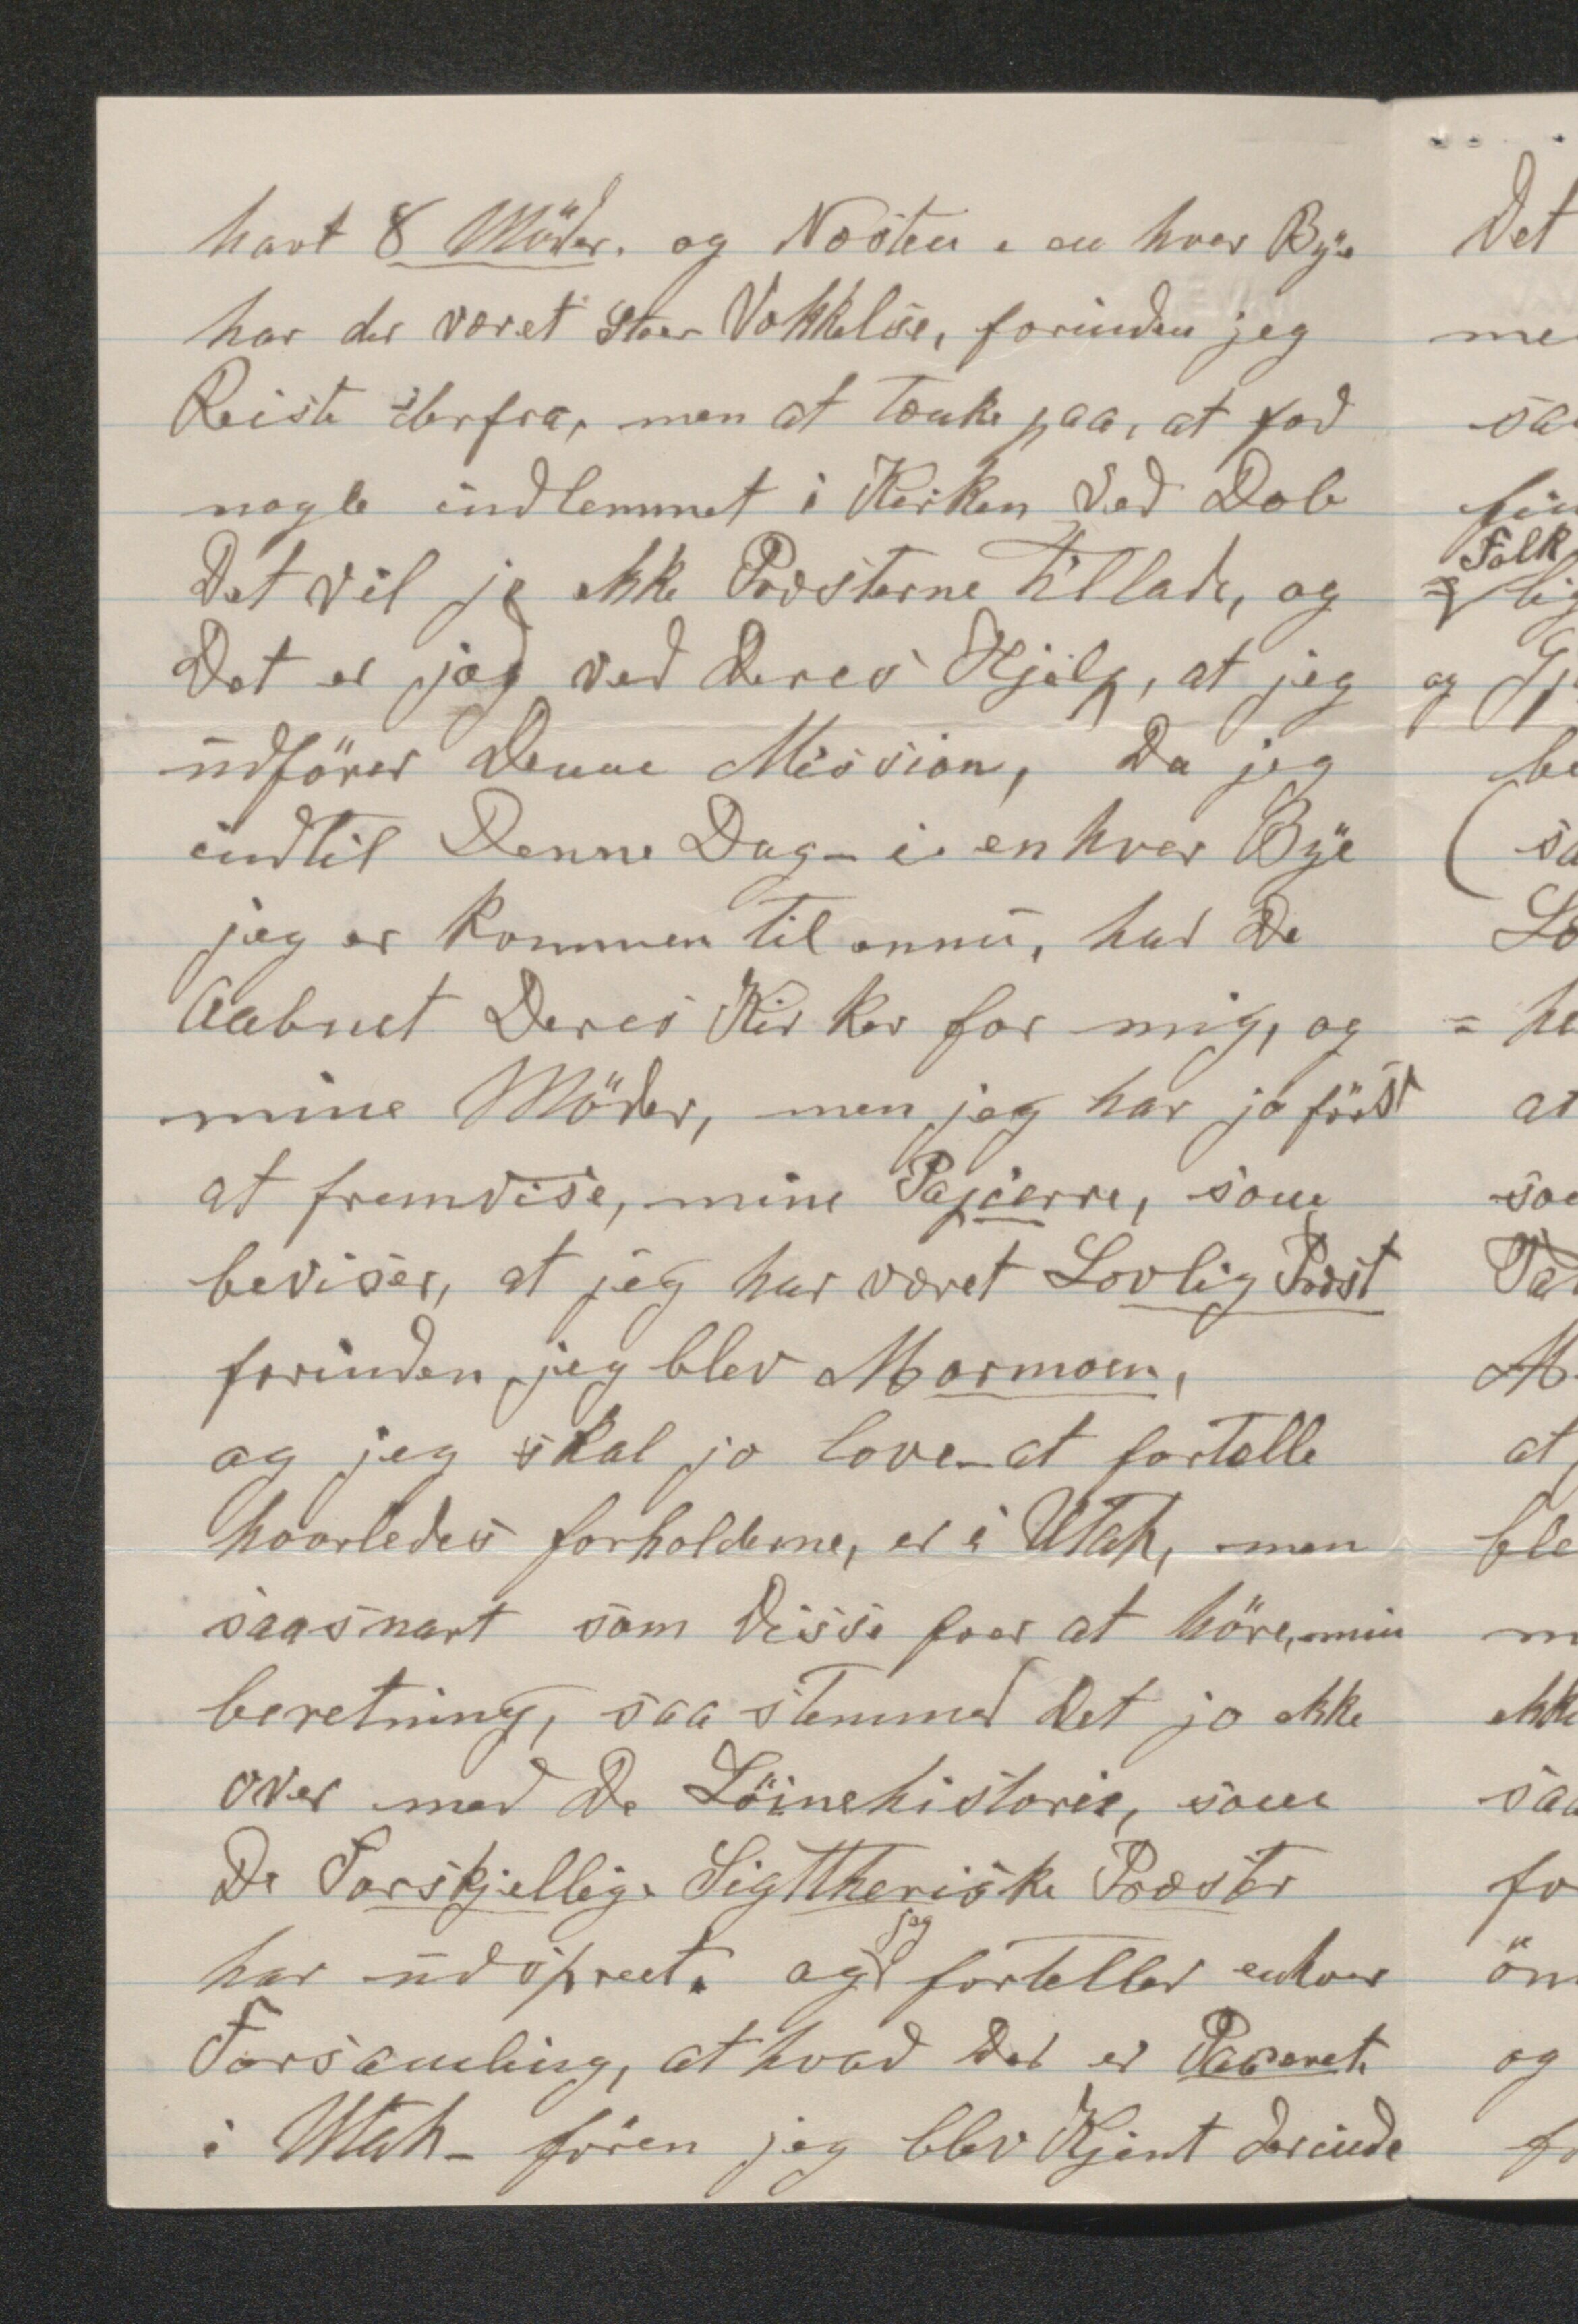 havt 8 Möder. og Næsten i en hver Bÿe
har der været Stoer Vækkelse, forinden jeg
Reiste derfra, men at tænke paa, at faa
nogle indlemmet i Kirken Ved Dob
Det vil jo ekke Præsterne tillade, og
Det er jog ved deres Hjelp, at jeg
ūdförer Denne Mission, Da jeg
indtil Denne Dag - i en hver Bÿe
jeg er kommen til ennū, har De
Aabnet Deres Kirker for mig, og
mine Möder, men jeg har jo först
at fremvise, mine Papierre, som
beviser, at jeg har været Lovlig Præst
forinden jeg blev Mormoen,
og jeg skal jo love - at fortælle
hvorledes forholderne, er i Utah, men
saasnart som Disse faar at höre, min
beretning, saa stemmer Det jo ekke
over med De Löinehistorie, som
De Forskjellige Sigttheriske Præster
har ūdspreet. og jeg forteller enhver
Forsamling, at hvad der er Paseret
i Utah - fören jeg blev Kjent derinde
Det
Folk
og
at
at
ekke
og